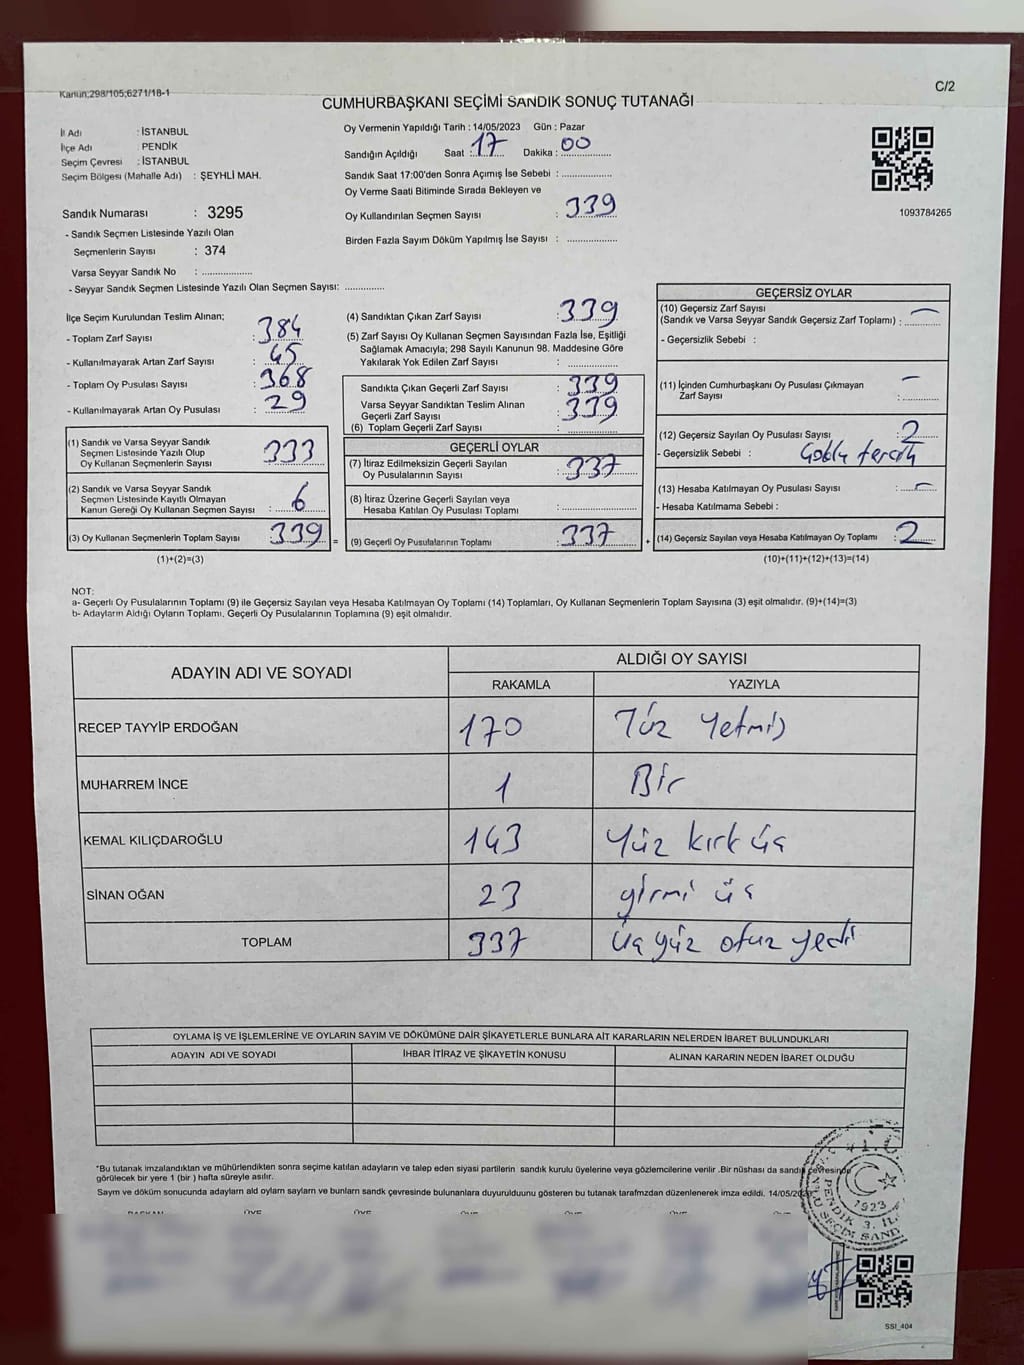 Kanun;298/105;6271/18-1
C/2
CUMHURBAŞKANI SEÇİMİ SANDIK SONUÇ TUTANAĞI
İl Adı : İSTANBUL
İlçe Adı : PENDİK
Seçim Çevresi : İSTANBUL
Seçim Bölgesi (Mahalle Adı) : ŞEYHLİ MAH.
Sandık Numarası : 3295
- Sandık Seçmen Listesinde Yazılı Olan
Seçmenlerin Sayısı : 374
Varsa Seyyar Sandık No : ...............
- Seyyar Sandık Seçmen Listesinde Yazılı Olan Seçmen Sayısı: ............
Oy Vermenin Yapıldığı Tarih : 14/05/2023 Gün : Pazar
Sandığın Açıldığı Saat : 17 Dakika : 00
Sandık Saat 17:00'den Sonra Açımış İse Sebebi : ...............
Oy Verme Saati Bitiminde Sırada Bekleyen ve
Oy Kullandırılan Seçmen Sayısı : 339
Birden Fazla Sayım Döküm Yapılmış İse Sayısı : ...............
1093784265
İlçe Seçim Kurulundan Teslim Alınan;
- Toplam Zarf Sayısı : 384
- Kullanılmayarak Artan Zarf Sayısı : 45
- Toplam Oy Pusulası Sayısı : 368
- Kullanılmayarak Artan Oy Pusulası : 29
(1) Sandık ve Varsa Seyyar Sandık
Seçmen Listesinde Yazılı Olup
Oy Kullanan Seçmenlerin Sayısı 333
(2) Sandık ve Varsa Seyyar Sandık
Seçmen Listesinde Kayıtlı Olmayan
Kanun Gereği Oy Kullanan Seçmen Sayısı : 6
(3) Oy Kullanan Seçmenlerin Toplam Sayısı 339 =
(1)+(2)=(3)
(4) Sandıktan Çıkan Zarf Sayısı : 339
(5) Zarf Sayısı Oy Kullanan Seçmen Sayısından Fazla İse, Eşitliği
Sağlamak Amacıyla; 298 Sayılı Kanunun 98. Maddesine Göre
Yakılarak Yok Edilen Zarf Sayısı : ...............
Sandıkta Çıkan Geçerli Zarf Sayısı : 339
Varsa Seyyar Sandıktan Teslim Alınan
Geçerli Zarf Sayısı : 339
(6) Toplam Geçerli Zarf Sayısı : ...............
GEÇERLİ OYLAR
(7) İtiraz Edilmeksizin Geçerli Sayılan
Oy Pusulasının Sayısı : 337
(8) İtiraz Üzerine Geçerli Sayılan veya
Hesaba Katılan Oy Pusulası Toplamı : ...............
(9) Geçerli Oy Pusulalarının Toplamı : 337 +
GEÇERSİZ OYLAR
(10) Geçersiz Zarf Sayısı
(Sandık ve Varsa Seyyar Sandık Geçersiz Zarf Toplamı) : —
- Geçersizlik Sebebi :
(11) İçinden Cumhurbaşkanı Oy Pusulası Çıkmayan
Zarf Sayısı : —
(12) Geçersiz Sayılan Oy Pusulası Sayısı : 2
- Geçersizlik Sebebi : Çoklu tercih
(13) Hesaba Katılmayan Oy Pusulası Sayısı : —
- Hesaba Katılmama Sebebi :
(14) Geçersiz Sayılan veya Hesaba Katılmayan Oy Toplamı : 2
(10)+(11)+(12)+(13)=(14)
NOT:
a- Geçerli Oy Pusulalarının Toplamı (9) ile Geçersiz Sayılan veya Hesaba Katılmayan Oy Toplamı (14) Toplamları, Oy Kullanan Seçmenlerin Toplam Sayısına (3) eşit olmalıdır. (9)+(14)=(3)
b- Adayların Aldığı Oyların Toplamı, Geçerli Oy Pusulalarının Toplamına (9) eşit olmalıdır.
ADAYIN ADI VE SOYADI
ALDIĞI OY SAYISI
RAKAMLA YAZIYLA
RECEP TAYYİP ERDOĞAN 170 Yüz Yetmiş
MUHARREM İNCE 1 Bir
KEMAL KILIÇDAROĞLU 143 Yüz kırk üç
SİNAN OĞAN 23 yirmi üç
TOPLAM 337 Üç yüz otuz yedi
OYLAMA İŞ VE İŞLEMLERİNE VE OYLARIN SAYIM VE DÖKÜMÜNE DAİR ŞİKAYETLERLE BUNLARA AİT KARARLARIN NELERDEN İBARET BULUNDUKLARI
ADAYIN ADI VE SOYADI İHBAR İTİRAZ VE ŞİKAYETİN KONUSU ALINAN KARARIN NEDEN İBARET OLDUĞU
*Bu tutanak imzalandıktan ve mühürlendikten sonra seçime katılan adayların ve talep eden siyasi partilerin sandık kurulu üyelerine veya gözlemcilerine verilir .Bir nüshası da sandık çevresinde
görülecek bir yere 1 (bir ) hafta süreyle asılır.
Sayım ve döküm sonucunda adayların ald oyların sayların ve bunların sandk çevresinde bulunanlara duyurulduunu gösteren bu tutanak tarafmzdan düzenlenerek imza edildi. 14/05/20
BAŞKAN ÜYE ÜYE ÜYE ÜYE ÜYE ÜYE
1923
PENDİK 3. İL
SEÇİM SAND
SSI_404